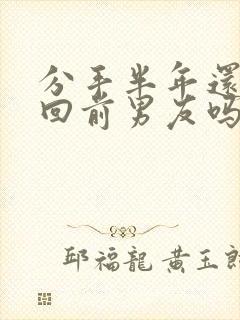 分手半年還
回前男友吗
邱福龍 黄玉郎